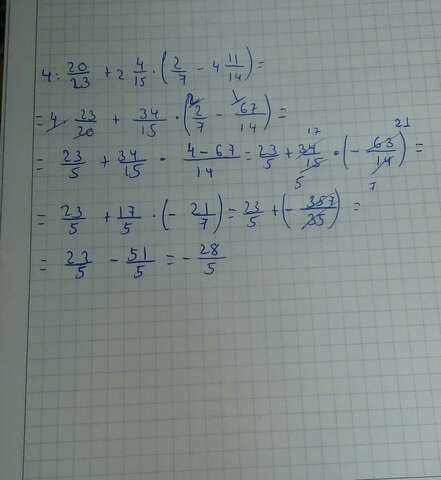 4 : 20/23 + 2 4/15 · (2/7 - 4 11/14) =
= 4 · 23/20 + 34/15 · (2/7 - 67/14) =
= 23/5 + 34/15 · (4-67)/14 = 23/5 + 34/15 · (- 63/14) =
= 23/5 + 17/5 · (- 21/7) = 23/5 + (- 357/35) =
= 23/5 - 51/5 = - 28/5